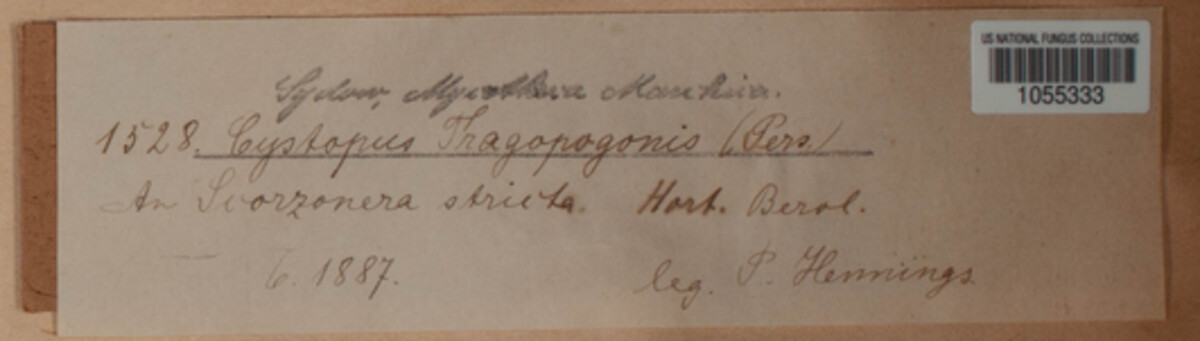 US NATIONAL FUNGUS COLLECTIONS
1055333
Sydow, Mycotheca Marchica.
1528. Cystopus Tragopogonis (Pers.)
An Scorzonera stricta. Hort. Berol.
6. 1887. leg. P. Hennings.